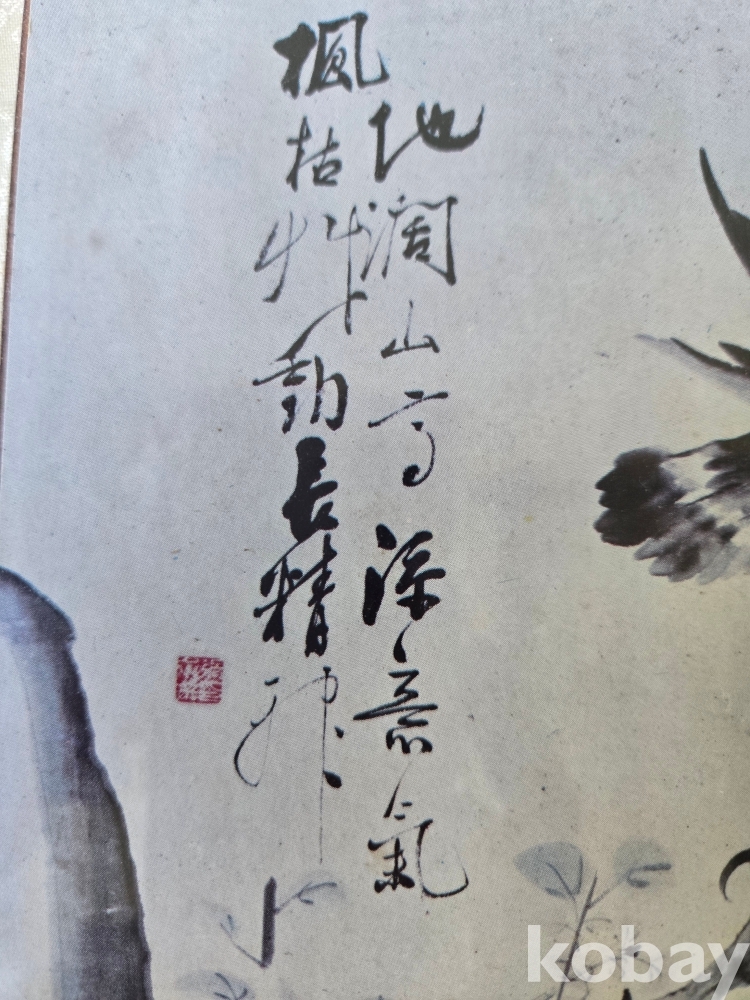 地闊山高添意氣
楓枯艸動長精神
kobay